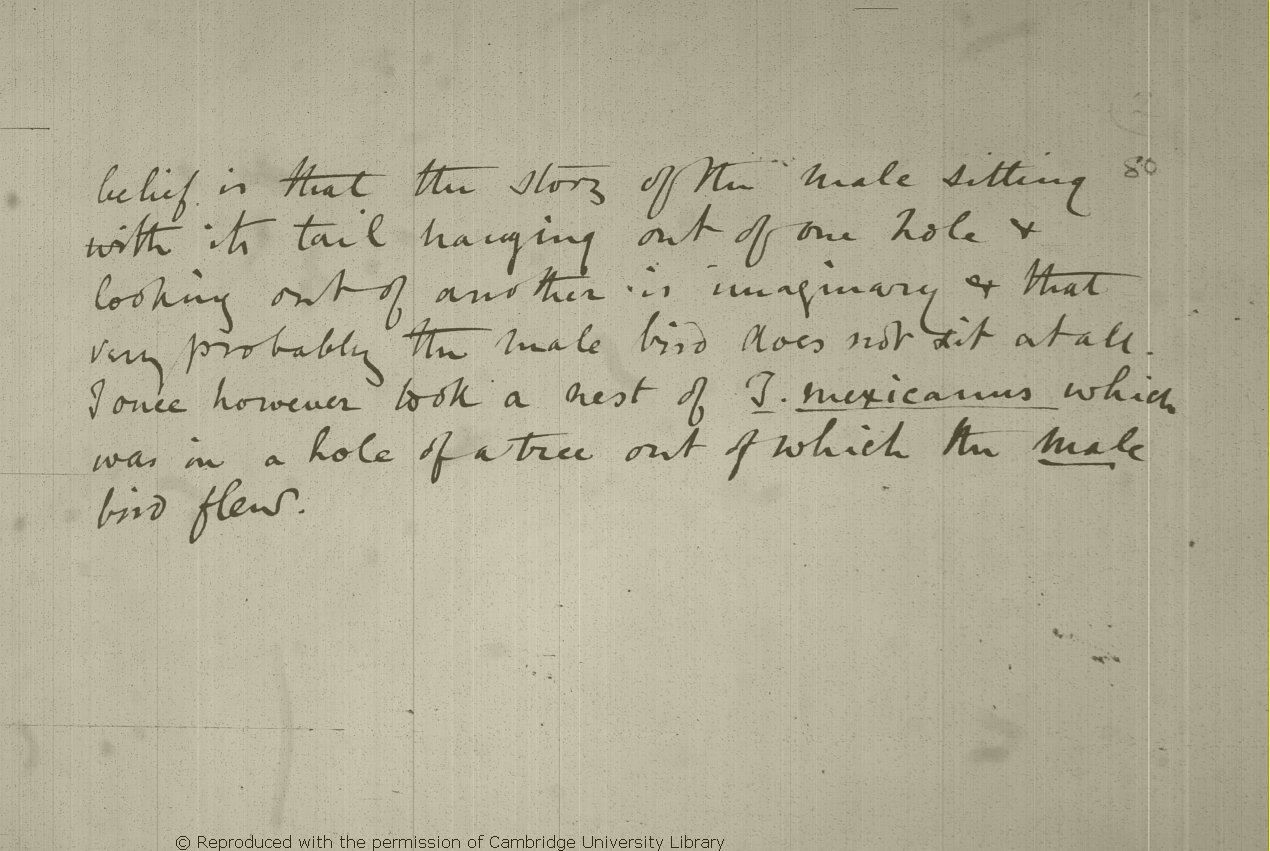 80
belief is that the story of the male sitting
with its tail hanging out of one hole &
looking out of another is imaginary & that
very probably the male bird does not sit at all.
I once however took a nest of T. mexicanus which
was in a hole of a tree out of which the male
bird flew.
© Reproduced with the permission of Cambridge University Library